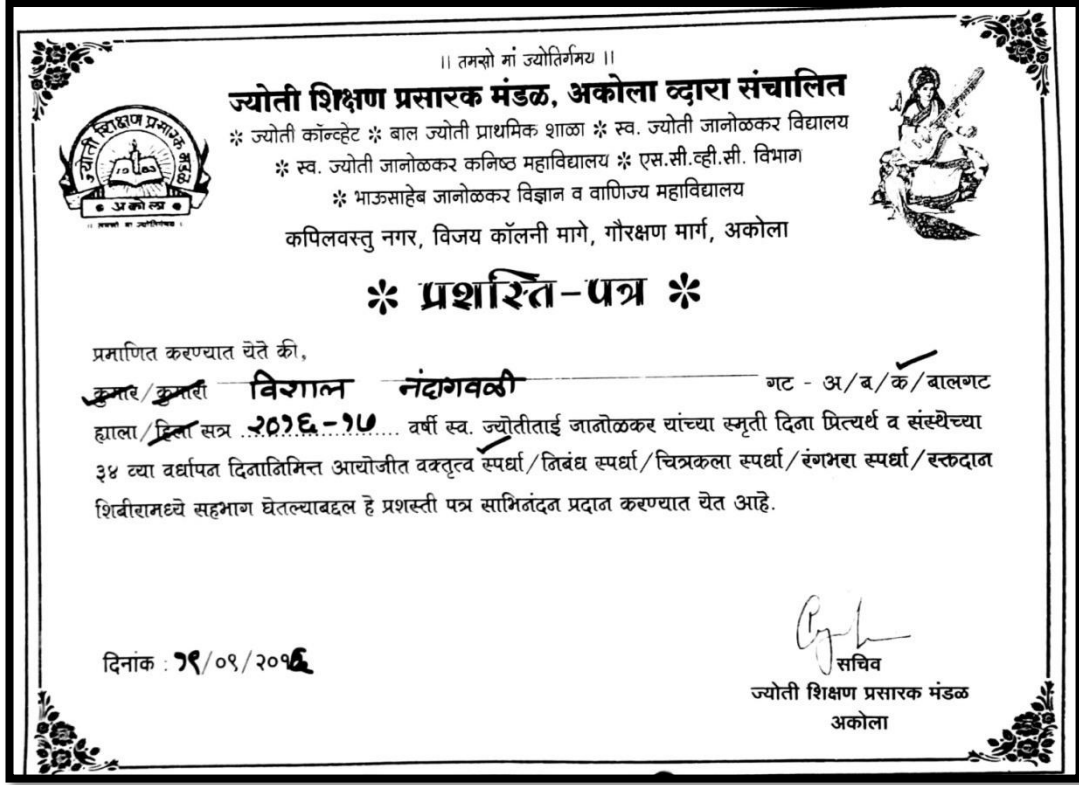 || तमसो मां ज्योतिर्गमय ||
ज्योती शिक्षण प्रसारक मंडळ, अकोला व्दारा संचालित
❇ ज्योती कॉन्व्हेट ❇ बाल ज्योती प्राथमिक शाळा ❇ स्व. ज्योती जानोळकर विद्यालय
❇ स्व. ज्योती जानोळकर कनिष्ठ महाविद्यालय ❇ एस.सी.व्ही.सी. विभाग
❇ भाऊसाहेब जानोळकर विज्ञान व वाणिज्य महाविद्यालय
कपिलवस्तु नगर, विजय कॉलनी मागे, गौरक्षण मार्ग, अकोला
ज्योती शिक्षण प्रसारक मंडळ
१९८३
अकोला
|| तमसो मा ज्योतिर्गमय ||
❇ प्रशस्ति-पत्र ❇
प्रमाणित करण्यात येते की,
कुमार/कुमारी विशाल नंदागवळी गट - अ/ब/क/बालगट
ह्याला/हिला सत्र २०१६-१७ वर्षी स्व. ज्योतीताई जानोळकर यांच्या स्मृती दिना प्रित्यर्थ व संस्थेच्या
३४ व्या वर्धापन दिनानिमित्त आयोजीत वक्तृत्व स्पर्धा/निबंध स्पर्धा/चित्रकला स्पर्धा/रंगभरा स्पर्धा/रक्तदान
शिबीरामध्ये सहभाग घेतल्याबद्दल हे प्रशस्ती पत्र साभिनंदन प्रदान करण्यात येत आहे.
दिनांक : १९/०९/२०१६
सचिव
ज्योती शिक्षण प्रसारक मंडळ
अकोला